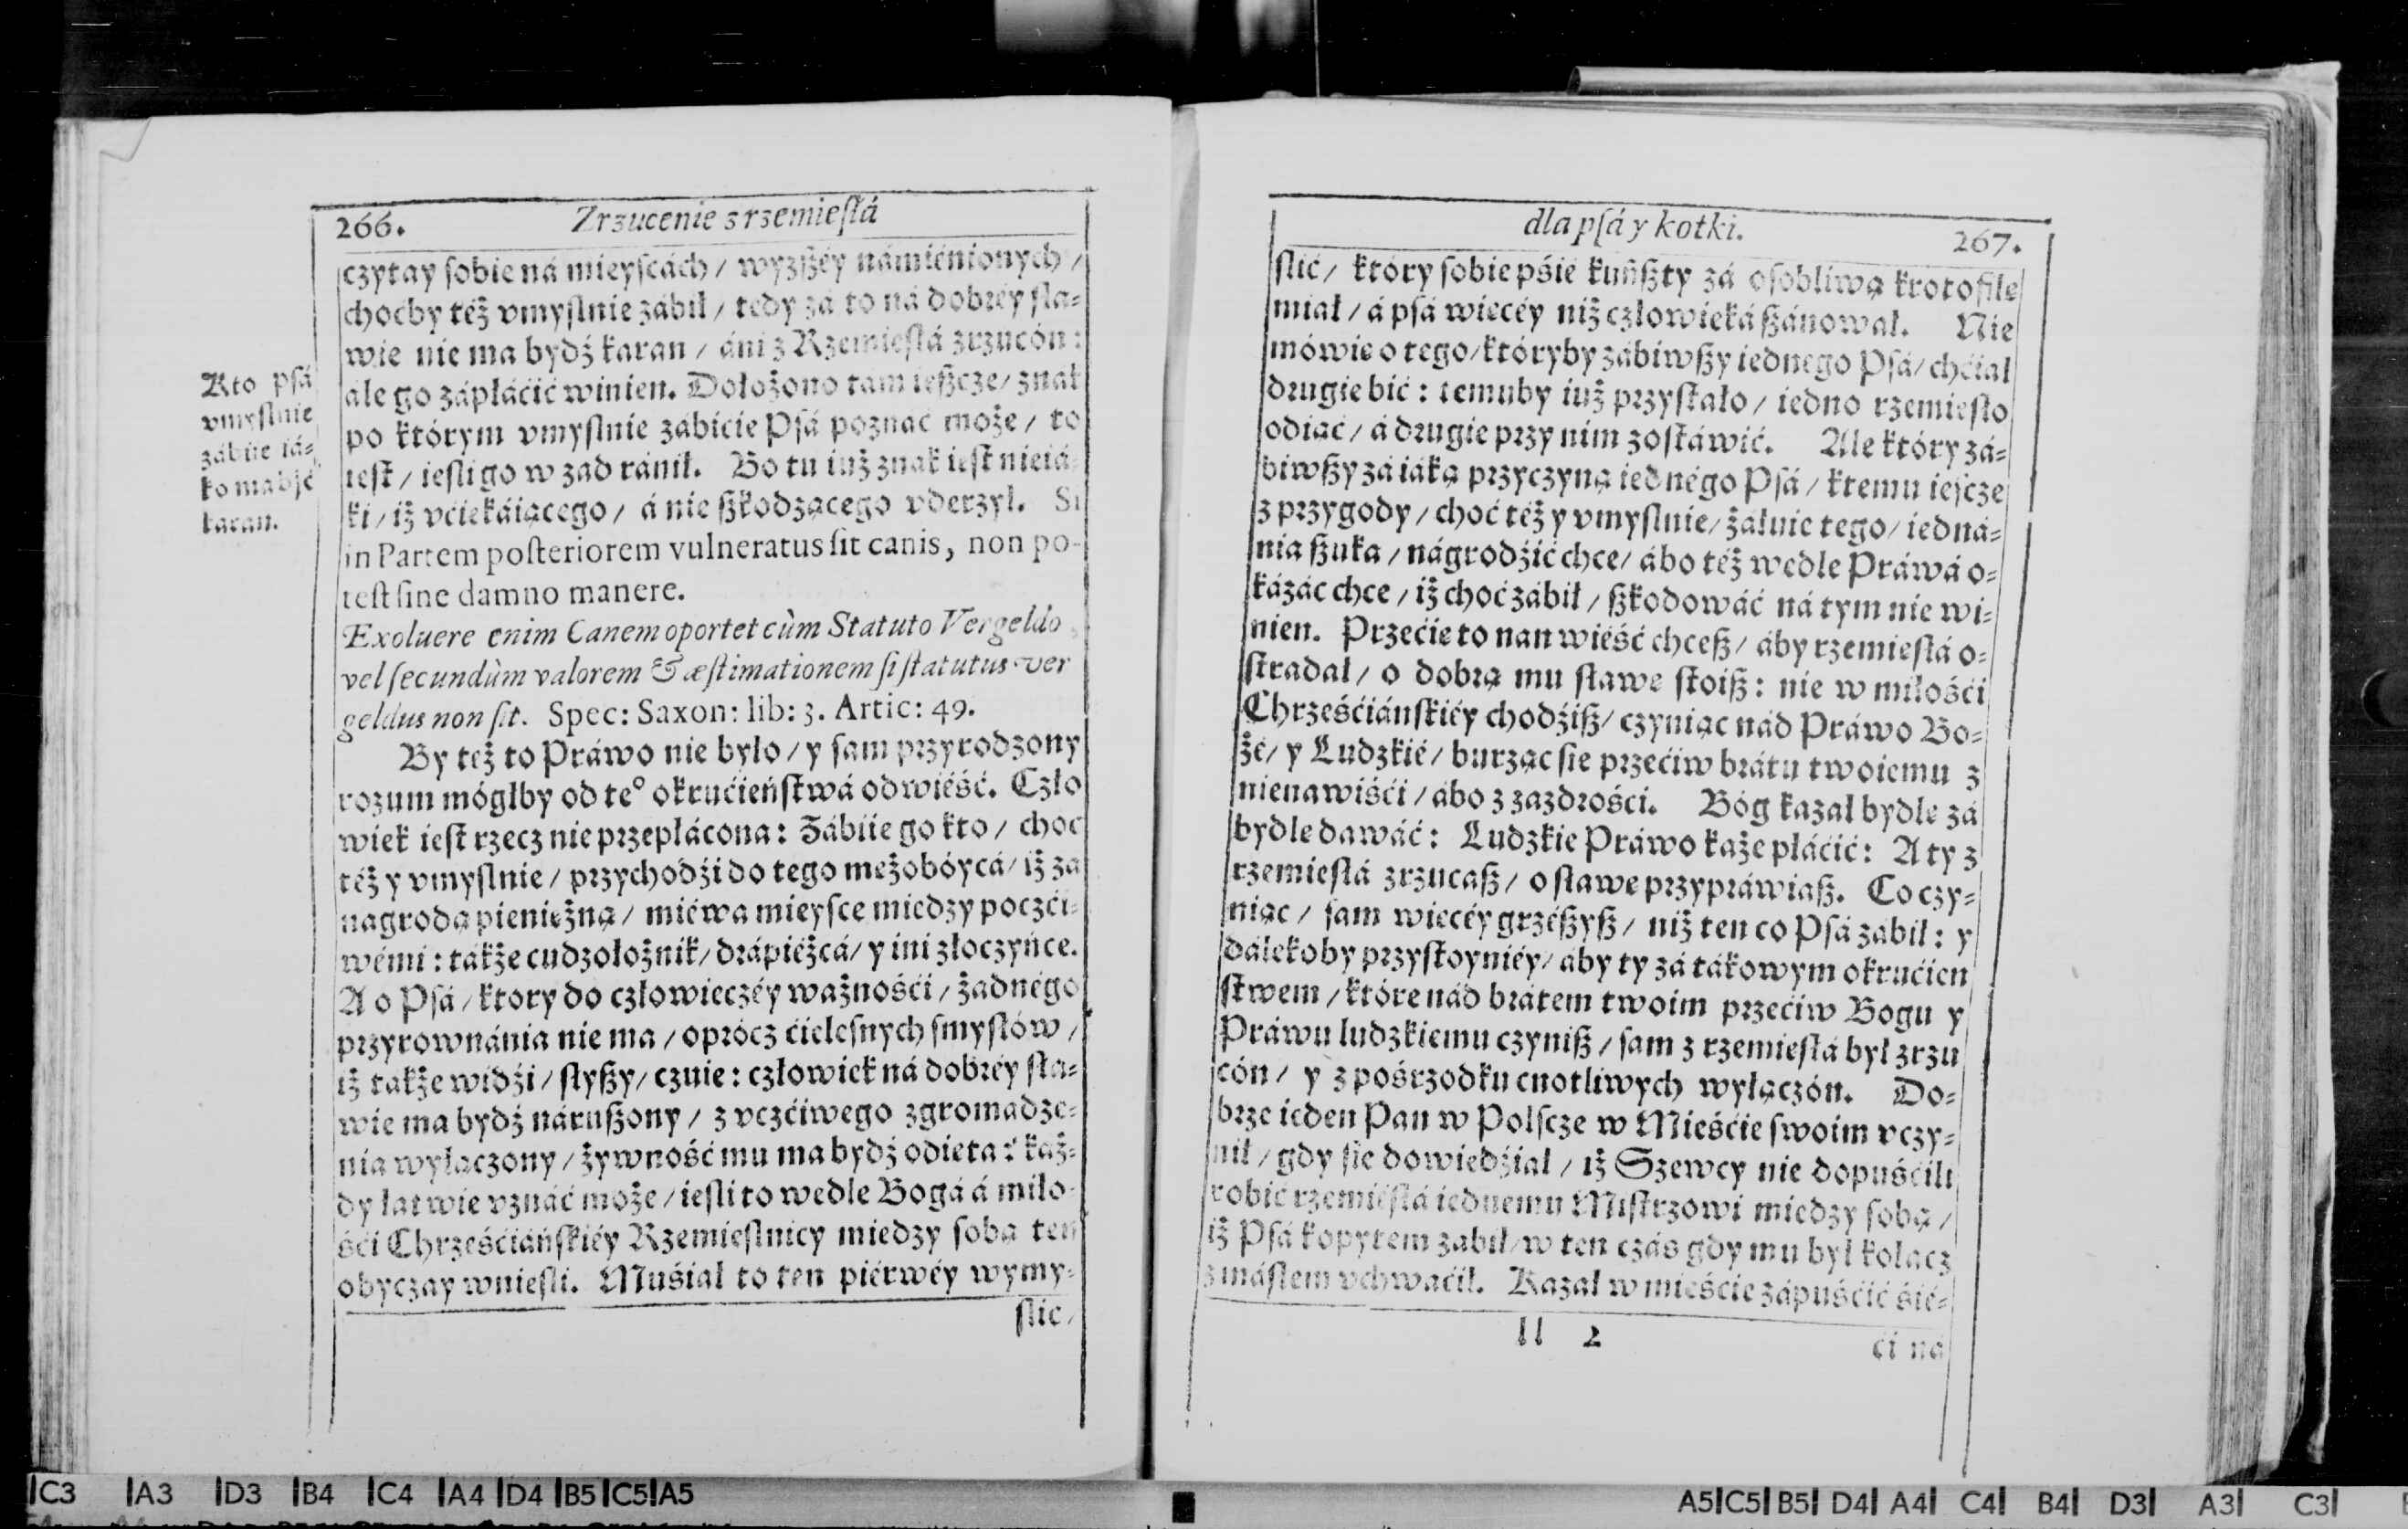 266. Zrzucenie z rzemieſłá
czytay ſobie ná mieyſcách / wyzßéy námiénionych /
choćby téż vmyſlnie zábił / tedy zá to ná dobréy ſła-
wie nie ma bydź karan / áni z Rzemieſłá zrzucón:
ále go zápłáćić winien. Dołożono tám ießcze / znak
po którym vmyſlnie zábićie Pſá poznáć może / to
ieſt / ieſli go w zad ránił. Bo tu iuż znak ieſt nieiá-
ki / iż vćiekáiącego / á nie ßkodzącego vderzył. Si
in Partem poſteriorem vulneratus ſit canis, non po-
teſt ſine damno manere.
Exoluere enim Canem oportet cùm Statuto Vergeldo
vel ſecundùm valorem & æſtimationem ſi ſtatutus ver
geldus non ſit. Spec: Saxon: lib: 3. Artic: 49.
By też to Práwo nie było / y ſam przyrodzony
rozum mógłby od te° okrućieńſtwá odwiéść. Czło
wiek ieſt rzecz nie przepłácona: Zábiie go kto / choć
też y vmyſlnie / przychodźi do tego mężobóycá / iż zá
nagrodą pieniężną / miéwa mieyſce miedzy poczći-
wémi: tákże cudzołożnik / drápiéżcá / y ini złoczyńce.
A o Pſá / ktory do człowieczéy ważnośći / żadnégo
przyrownánia nie ma / oprócz ćieleſnych ſmyſłów /
iż także widźi / ſłyßy / czuie: człowiek ná dobréy ſła-
wie ma bydź nárußony / z vczćiwego zgromadze-
nia wyłączony / żywność mu ma bydź odięta: każ-
dy łatwie vznáć może / ieſli to wedle Bogá á miło-
śći Chrześćiáńſkiéy Rzemieſlnicy miedzy ſobą ten
obyczay wnieſli. Muśiał to ten piérwéy wymy-
ſlić /
Kto pſá
vmyſlnie
zábiie iá-
ko ma być
karan.
dla pſá y kotki. 267.
ſlić / który ſobie pśié kunßty zá oſobliwą krotofilę
miał / á pſá więcéy niż człowieká ßánował. Nie
mówię o tego / któryby zábiwßy iednego Pſá / chćiał
drugie bić: temuby iuż przyſtało / iedno rzemieſło
odiąć / á drugie przy nim zoſtáwić. Ale który zá-
biwßy zá iáką przyczyną iednégo Pſá / ktemu ieſcze
z przygody / choć téż y vmyſlnie / żáłuie tego / iedná-
nia ßuka / nágrodźić chce / ábo téż wedle Práwá o-
kázáć chce / iż choć zábił / ßkodowáć ná tym nie wi-
nien. Przećie to nan wiéść chceß / áby rzemieſłá o-
ſtradał / o dobrą mu ſławę ſtoiß: nie w miłośći
Chrześćiánſkiéy chodźiß / czyniąc nád Práwo Bo-
żé / y Ludzkié / burząc ſie przećiw brátu twoiemu z
nienawiśći / ábo z zazdrośći. Bóg kazał bydlę zá
bydlę dawáć: Ludzkie Práwo każe płáćić: A ty z
rzemieſłá zrzucaß / o ſławę przypráwiaß. Co czy-
niąc / ſam więcéy grzéßyß / niż ten co Pſá zábił: y
dálekoby przyſtoyniéy / áby ty zá tákowym okrućień
ſtwem / które nád brátem twoim przećiw Bogu y
Práwu ludzkiemu czyniß / ſam z rzemieſłá był zrzu
cón / y z pośrzodku cnotliwych wyłączón. Do-
brze ieden Pan w Polſcze w Mieśćie ſwoim vczy-
nił / gdy ſię dowiedźiał / iż Szewcy nie dopuśćili
robić rzemiéſłá iednemu Miſtrzowi miedzy ſobą /
iż Pſá kopytem zábił / w ten czás gdy mu był kołacz
z máſłem vchwaćił. Kazał w mieśćie zápuśćić śié-
ll 2 ći ná